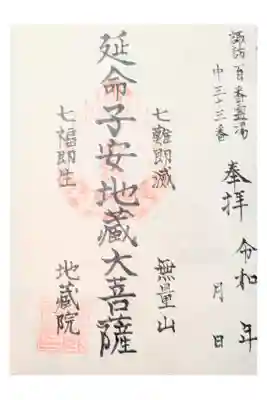 諏訪百番霊場
中三十三番
奉拝 令和 年
月 日
七難即滅 無量山
延命子安地蔵大菩薩
七福即生 地蔵院